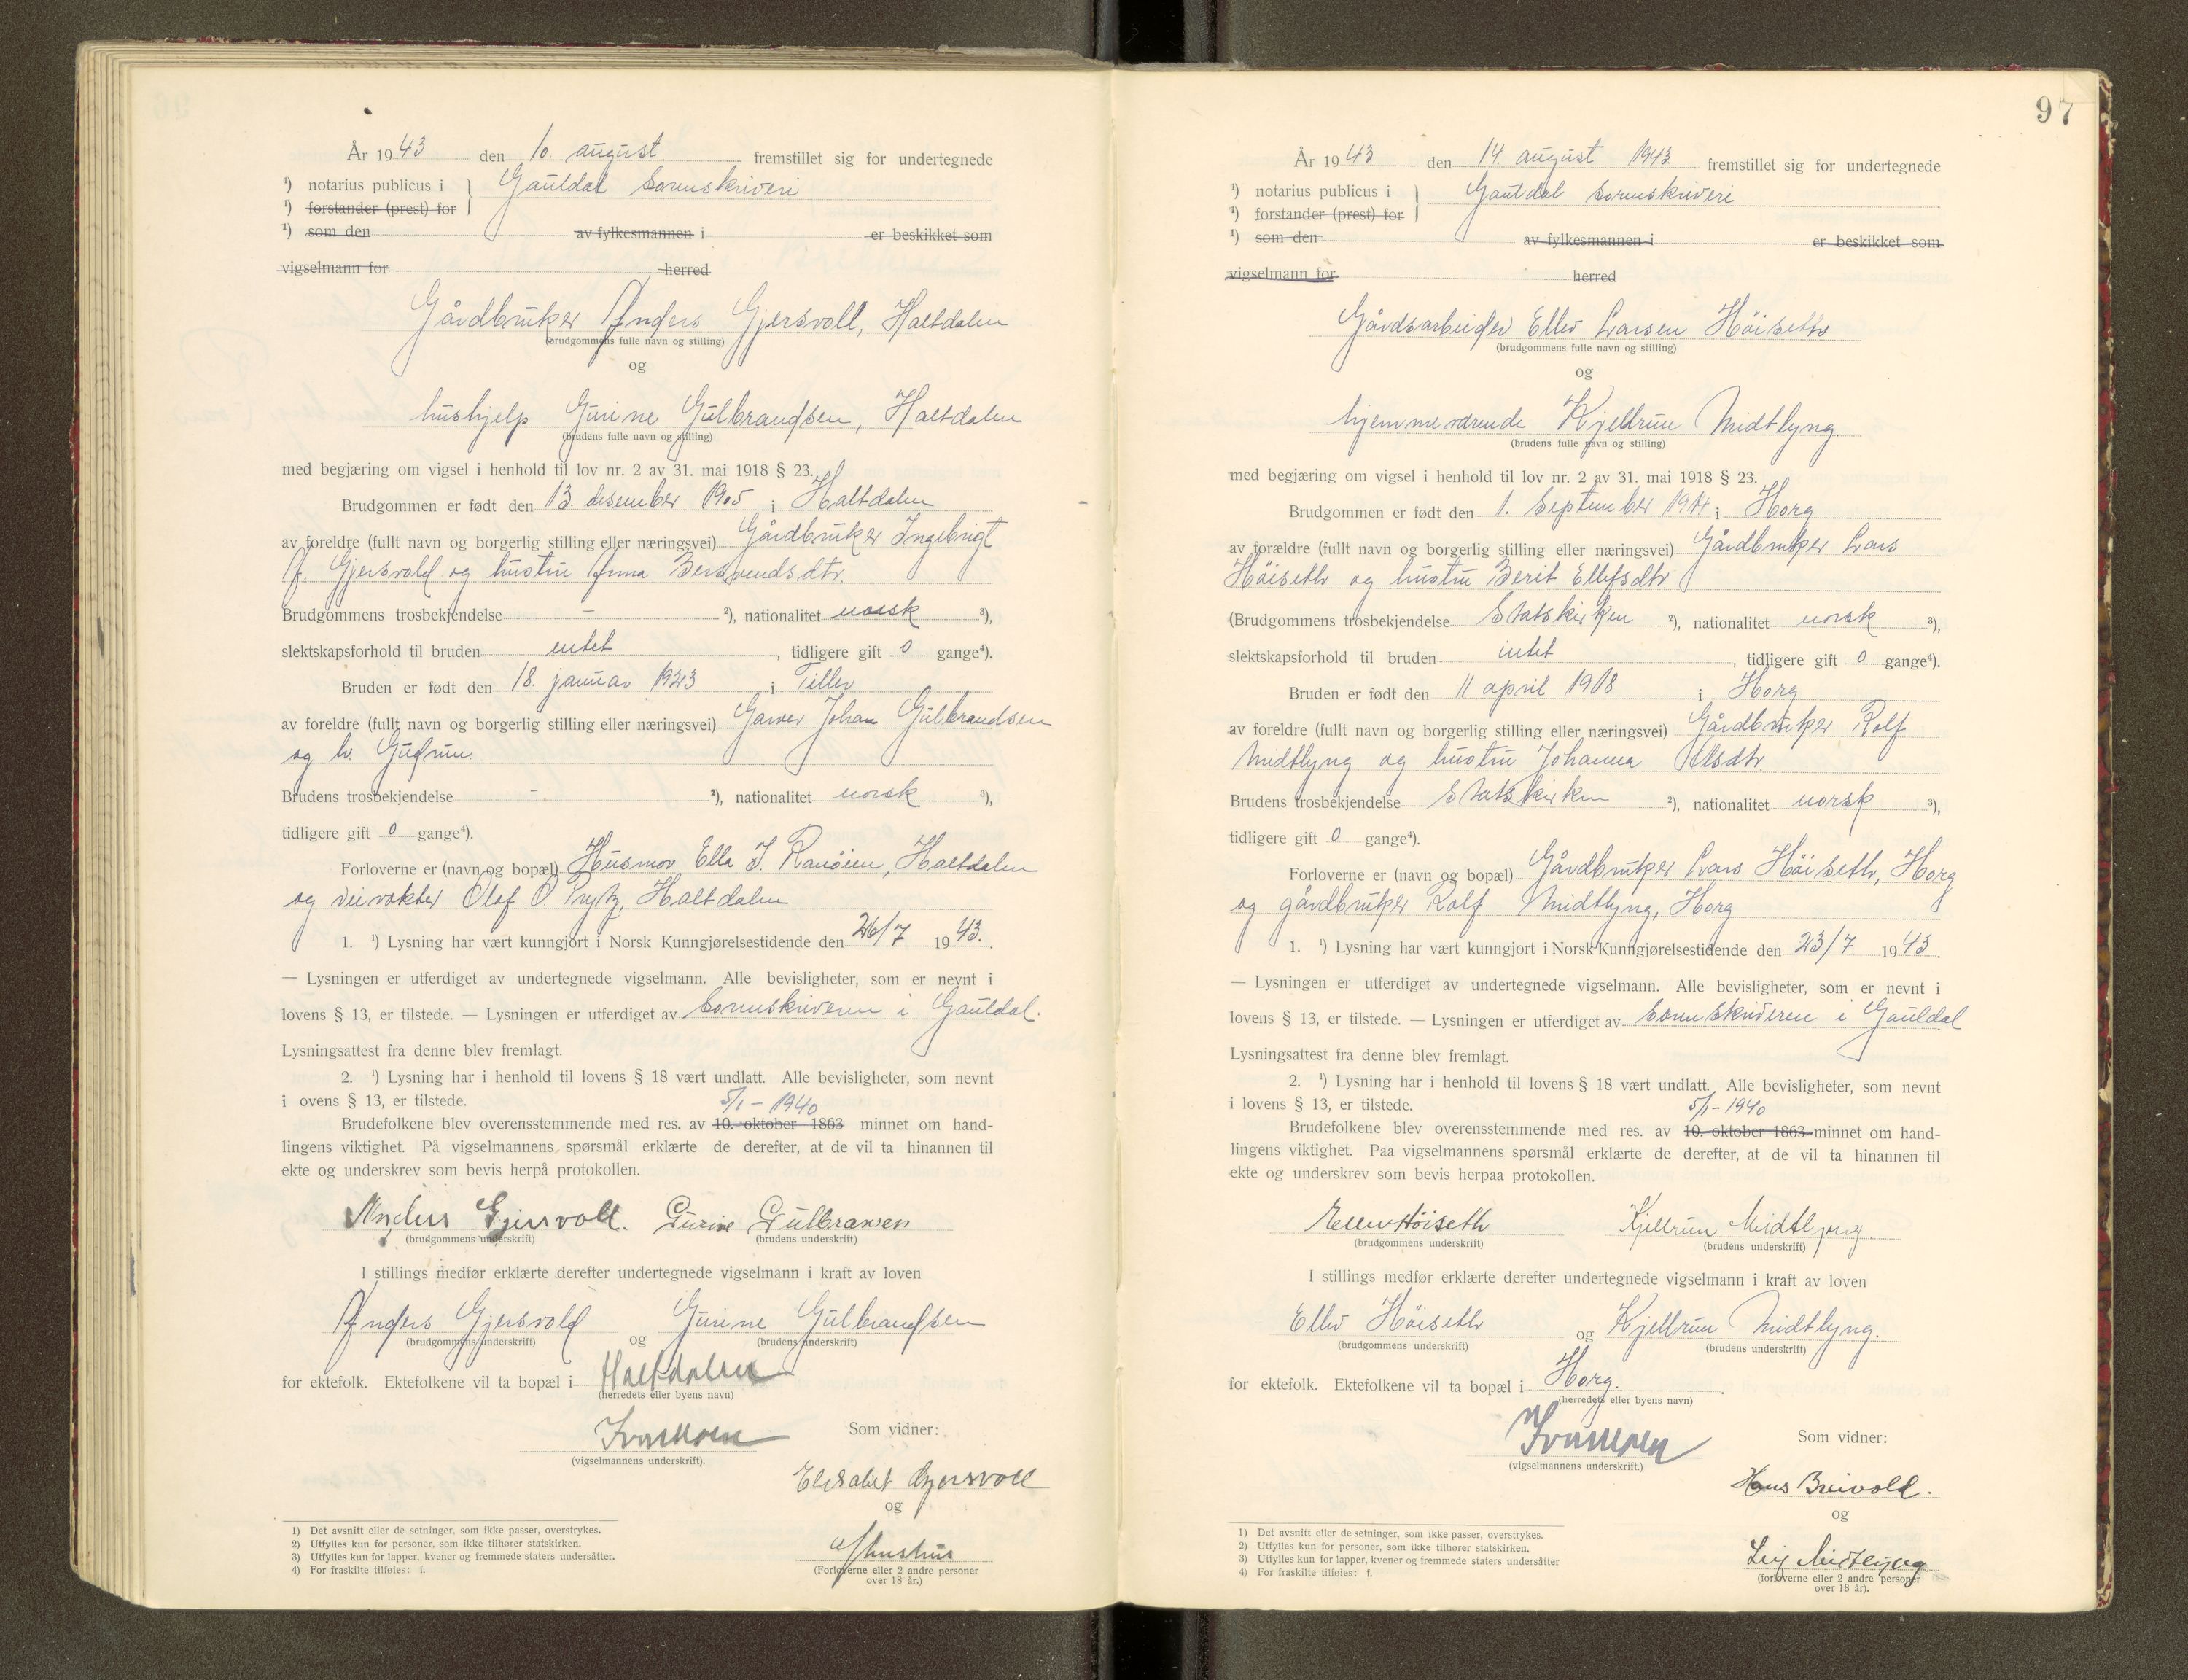 År 1943 den 10. august. fremstillet sig for undertegnede
¹) notarius publicus i } Gauldal sorenskriveri
¹) forstander (prest) for
¹) som den av fylkesmannen i er beskikket som
vigselmann for herred
Gårdbruker Anders Gjersvoll, Haltdalen
(brudgommens fulle navn og stilling)
og
hushjelp Gurine Gulbrandsen, Haltdalen
(brudens fulle navn og stilling)
med begjæring om vigsel i henhold til lov nr. 2 av 31. mai 1918 § 23.
Brudgommen er født den 13. desember 1905 i Haltdalen
av foreldre (fullt navn og borgerlig stilling eller næringsvei) Gårdbruker Ingebrigt
A. Gjersvold og hustru Anna Bersvendsdtr.
Brudgommens trosbekjendelse - ²), nationalitet norsk ³),
slektskapsforhold til bruden intet, tidligere gift 0 gange⁴).
Bruden er født den 18. januar 1923 i Tiller
av foreldre (fullt navn og borgerlig stilling eller næringsvei) Garver Johan Gulbrandsen
og h. Gudrun.
Brudens trosbekjendelse -. ²), nationalitet norsk ³),
tidligere gift 0 gange⁴).
Forloverne er (navn og bopæl) Husmor Ella J. Ranøien, Haltdalen
og veivokter Olaf O Prytz, Haltdalen
1. ¹) Lysning har vært kunngjort i Norsk Kunngjørelsestidende den 26/7 1943.
— Lysningen er utferdiget av undertegnede vigselmann. Alle bevisligheter, som er nevnt i
lovens § 13, er tilstede. — Lysningen er utferdiget av Sorenskriveren i Gauldal.
Lysningsattest fra denne blev fremlagt.
2. ¹) Lysning har i henhold til lovens § 18 vært undlatt. Alle bevisligheter, som nevnt
i ovens § 13, er tilstede.
5/1 - 1940
Brudefolkene blev overensstemmende med res. av 10. oktober 1863 minnet om hand-
lingens viktighet. På vigselmannens spørsmål erklærte de derefter, at de vil ta hinannen til
ekte og underskrev som bevis herpå protokollen.
Anders Gjersvoll. Gurine Gulbransen
(brudgommens underskrift) (brudens underskrift)
I stillings medfør erklærte derefter undertegnede vigselmann i kraft av loven
Anders Gjersvold og Gurine Gulbrandsen
(brudgommens underskrift) (brudens underskrift)
for ektefolk. Ektefolkene vil ta bopæl i Haltdalen
(herredets eller byens navn)
Som vidner:
(vigselmannens underskrift).
Elisabet Gjersvoll
og
(Forloverne eller 2 andre personer
over 18 år.)
1) Det avsnitt eller de setninger, som ikke passer, overstrykes.
2) Utfylles kun for personer, som ikke tilhører statskirken.
3) Utfylles kun for lapper, kvener og fremmede staters undersåtter.
4) For fraskilte tilføies: f.
97
År 1943 den 14. august 1943. fremstillet sig for undertegnede
¹) notarius publicus i } Gauldal sorenskriveri
¹) forstander (prest) for
¹) som den av fylkesmannen i er beskikket som
vigselmann for herred
Gårdsarbeider Ellev Larsen Høiseth
(brudgommens fulle navn og stilling)
og
hjemmeværende Kjellrun Midtlyng.
(brudens fulle navn og stilling)
med begjæring om vigsel i henhold til lov nr. 2 av 31. mai 1918 § 23.
Brudgommen er født den 1. September 1914 i Horg
av forældre (fullt navn og borgerlig stilling eller næringsvei) Gårdbruker Lars
Høiseth og hustru Berit Ellefsdtr.
(Brudgommens trosbekjendelse Statskirken ²), nationalitet norsk ³),
slektskapsforhold til bruden intet, tidligere gift 0 gange⁴).
Bruden er født den 11 april 1918 i Horg
av foreldre (fullt navn og borgerlig stilling eller næringsvei) Gårdbruker Rolf
Midtlyng og hustru Johanna Olsdtr.
Brudens trosbekjendelse Statskirken ²), nationalitet norsk ³),
tidligere gift 0 gange⁴).
Forloverne er (navn og bopæl) Gårdbruker Lars Høiseth, Horg
og gårdbruker Rolf Midtlyng, Horg
1. ¹) Lysning har vært kunngjort i Norsk Kunngjørelsestidende den 23/7 1943.
— Lysningen er utferdiget av undertegnede vigselmann. Alle bevisligheter, som er nevnt i
lovens § 13, er tilstede. — Lysningen er utferdiget av Sorenskriveren i Gauldal
Lysningsattest fra denne blev fremlagt.
2. ¹) Lysning har i henhold til lovens § 18 vært undlatt. Alle bevisligheter, som nevnt
i lovens § 13, er tilstede.
5/1 - 1940
Brudefolkene blev overensstemmende med res. av 10. oktober 1863 minnet om hand-
lingens viktighet. Paa vigselmannens spørsmål erklærte de derefter, at de vil ta hinannen til
ekte og underskrev som bevis herpaa protokollen.
Ellev Høiseth Kjellrun Midtlyng.
(brudgommens underskrift) (brudens underskrift)
I stillings medfør erklærte derefter undertegnede vigselmann i kraft av loven
Ellev Høiseth og Kjellrun Midtlyng.
(brudgommens underskrift) (brudens underskrift)
for ektefolk. Ektefolkene vil ta bopæl i Horg.
(herredets eller byens navn)
Som vidner:
(vigselmannens underskrift.)
Hans Breivold.
og
Leif Midtlyng
(forloverne eller 2 andre personer
over 18 år).
1) Det avsnitt eller de setninger, som ikke passer, overstrykes.
2) Utfylles kun for personer, som ikke tilhører statskirken.
3) Utfylles kun for lapper, kvener og fremmede staters undersåtter
4) For fraskilte tilføies: f.